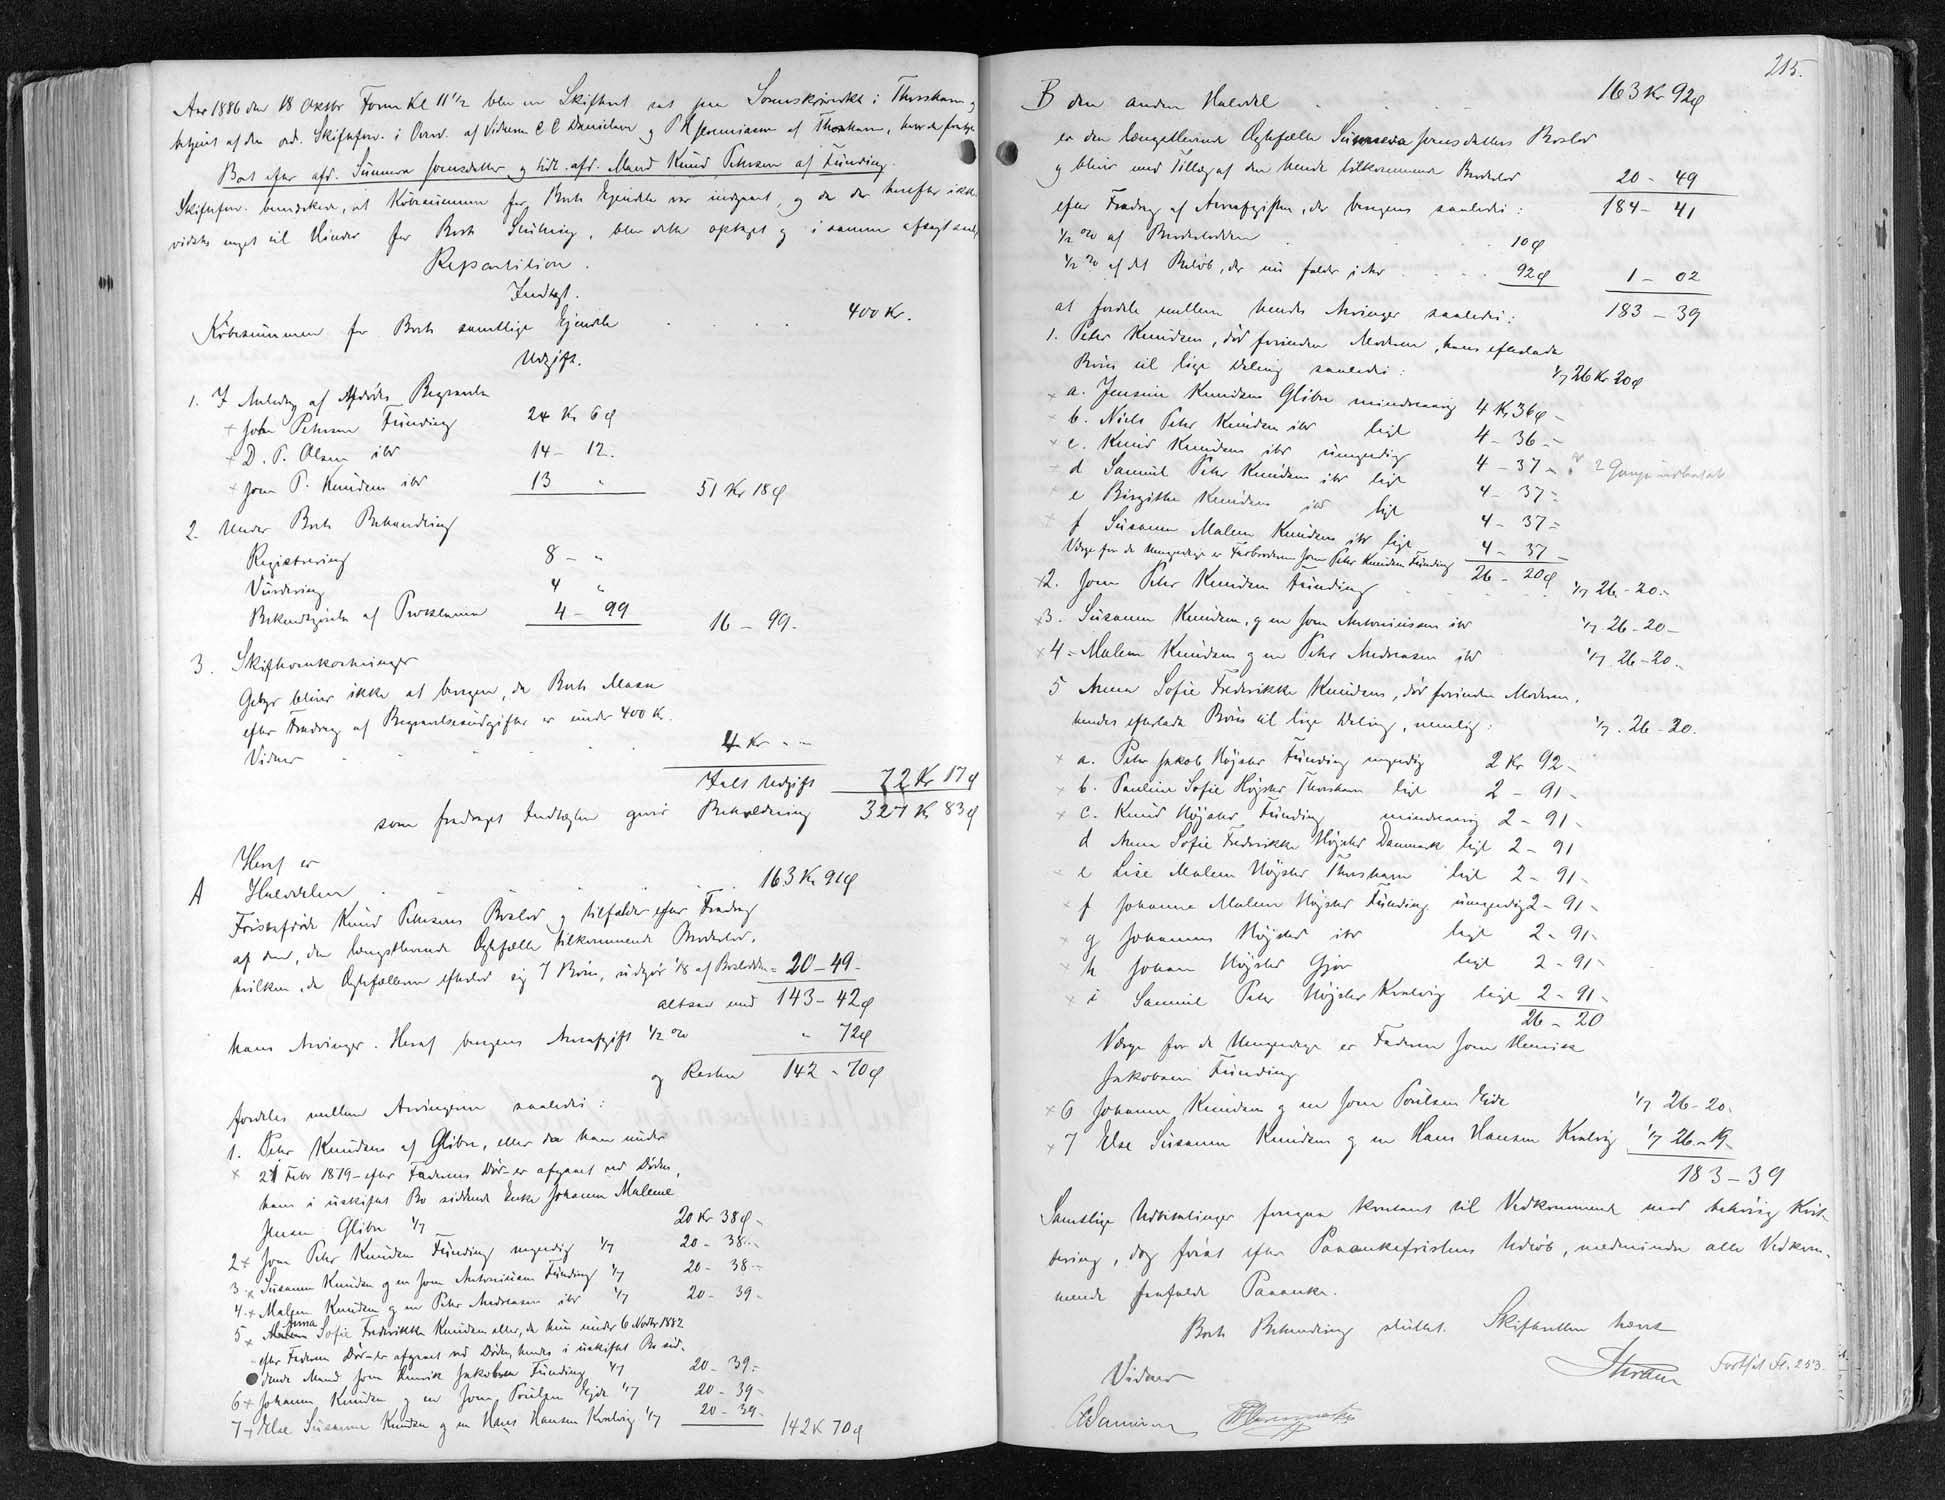 Aar 1886 den 18 Oktbr Form Kl 11 1/2 blev en Skifteret sat paa Sorenskriverkt i Thorshavn og
betjent af den ord. Skifteforv. i Overv. af Vidnerne C C Danielsen og af Thorshavn, hvor da foretoges
Boet efter afd. Sunneva Joensdatter og tidl. afd. Mand Knud Petersen af Funding.
Skifteforv. bemærkede, at Købesummen for Boets Ejendele var indgaaet, og da der herefter ikke
vidstes noget til Hinder for Boets Slutning, blev dette optaget og i samme afsagt saadan
Repartition.
Indtægt.
Købesummen for Boets samtlige Ejendele 400 Kr.
Udgift.
1. I Anledng af Afdødes Begravelse
+ John Petersen Funding 24 Kr 6 ø
+ D. P. Olsen ibd 14 - 12.
+ Joen P. Knudsen ibd 13 " 51 Kr 18 ø
2. Under Boets Behandling
Registrering 8 - "
Vurdering 4 "
Bekendtgørelse af Proklama 4 - 99 16 - 99.
3. Skifteomkostninger
Gebyr bliver ikke at beregne, da Boets Masse
efter Fradrag af Begravelsesudgifter er under 400 K.
Vidner 4 Kr - -
Ialt Udgift 72 Kr 17 ø
som fradraget Indtægten giver Beholdning 327 K 83 ø
Heraf er
A Halvdelen 163 Kr 91 ø
Førstafdøde Knud Petersens Boslod og tilfalder efter Fradrag
af den, den længstlevende Ægtefælle tilkommende Broderlod,
hvilken, da Ægtefællerne efterlod sig 7 Børn, udgør 1/8 af Boslodden = 20 - 49 -
altsaa med 143 - 42 ø
hans Arvinger. Heraf beregnes Arveafgift 1/2 % " 72 ø
og Resten 142 - 70 ø
fordeles mellem Arvingerne saaledes:
1. Peter Knudsen af Glibre, eller da han under
+ 21 Febr 1879 - efter Faderens Død - er afgaaet ved Døden,
hans i uskiftet Bo siddende Enke Johanne Malene
Jensen Glibre 1/7 20 Kr 38 ø -
2 + Joen Peter Knudsen Funding myndig 1/7 20 - 38 -
3. + Susanne Knudsen g m Joen Antoniussen Funding 1/7 20 - 38 -
4. + Malene Knudsen g m Peter Andreasen ibd 1/7 20 - 39 -
5 + Anna Sofie Frederikke Knudsen eller, da hun under 6 Novbr 1882
- efter Faderens Død - er afgaaet ved Døden, hendes i uskiftet Bo sid-
dende Mand Joen Henrik Jakobsen Funding 1/7 20 - 39 -
6 + Johanne Knudsen g m Joen Poulsen Ejde 1/7 20 - 39 -
7 + Else Susanne Knudsen g m Hans Hansen Kvalvig 1/7 20 - 39 - 142 K 70 ø
215.
B den anden Halvdel 163 Kr 92 ø
er den længstlevende Ægtefælle Sunneva Joensdatters Boslod
og bliver med Tillæg af den hende tilkommende Broderlod 20 - 49
efter Fradrag af Arveafgiften, der beregnes saaledes: 184 - 41
1/2 % af Broderlodden 10 ø
1/2 % af det Beløb, der nu falder i Arv 92 ø 1 - 02
at fordele mellem hendes Arvinger saaledes: 183 - 39
1. Peter Knudsen, død forinden Moderen, hans efterladte
Børn til lige Deling saaledes: 1/7 26 Kr 20 ø
+ a. Jensine Knudsen Glibre mindreaarig 4 Kr 36 ø -
+ b. Niels Peter Knudsen ibd ligl 4 - 36 -
+ c. Knud Knudsen ibd umyndig 4 - 37 - 2 Gange udbetalt
+ d Samuel Peter Knudsen ibd ligl 4 - 37 -
+ e Birgitte Knudsen ibd ligl 4 - 37 -
+ f Susanne Malene Knudsen ibd ligl 4 - 37 -
Værge for de Umyndige er Farbroderen Joen Peter Knudsen Funding 26 - 20 ø
+ 2. Joen Peter Knudsen Funding 1/7 26 - 20 -
+ 3. Susanne Knudsen, g m Joen Antoniussen ibd 1/7 26 - 20 -
+ 4 - Malene Knudsen g m Peter Andreasen ibd 1/7 26 - 20 -
5 Anna Sofie Frederikke Knudsen, død forinden Moderen,
hendes efterladte Børn til lige Deling, nemlig: 1/7 26 - 20.
+ a. Peter Jakob Højsted Funding myndig 2 Kr 92 -
+ b. Pauline Sofie Højsted Thorshavn ligl 2 - 91 -
+ c. Knud Højsted Funding mindreaarig 2 - 91 -
d Anna Sofie Frederikke Højsted Danmark ligl 2 - 91
+ e Lise Malene Højsted Thorshavn ligl 2 - 91 -
+ f Johanne Malene Højsted Funding umyndig 2 - 91 -
+ g Johannes Højsted ibd ligl 2 - 91 -
+ h Johan Højsted Gjov ligl 2 - 91 -
+ i Samuel Peter Højsted Kvalvig ligl 2 - 91 -
26 - 20
Værge for de Umyndige er Faderen Joen Henrik
Jakobsen Funding
+ 6 Johanne Knudsen g m Joen Poulsen Ejde 1/7 26 - 20.
+ 7 Else Susanne Knudsen g m Hans Hansen Kvalvig 1/7 26 - 19 -
183 - 39
Samtlige Udbetalinger foregaa kontant til Vedkommende mod behørig Kvit-
tering, dog først efter Paaankefristens Udløb, medmindre alle Vedkom-
mende frafalde Paaanke.
Boets Behandling sluttet. Skifteretten hævet
Fortsat Fl. 253.
Vidner
CCDanielsen